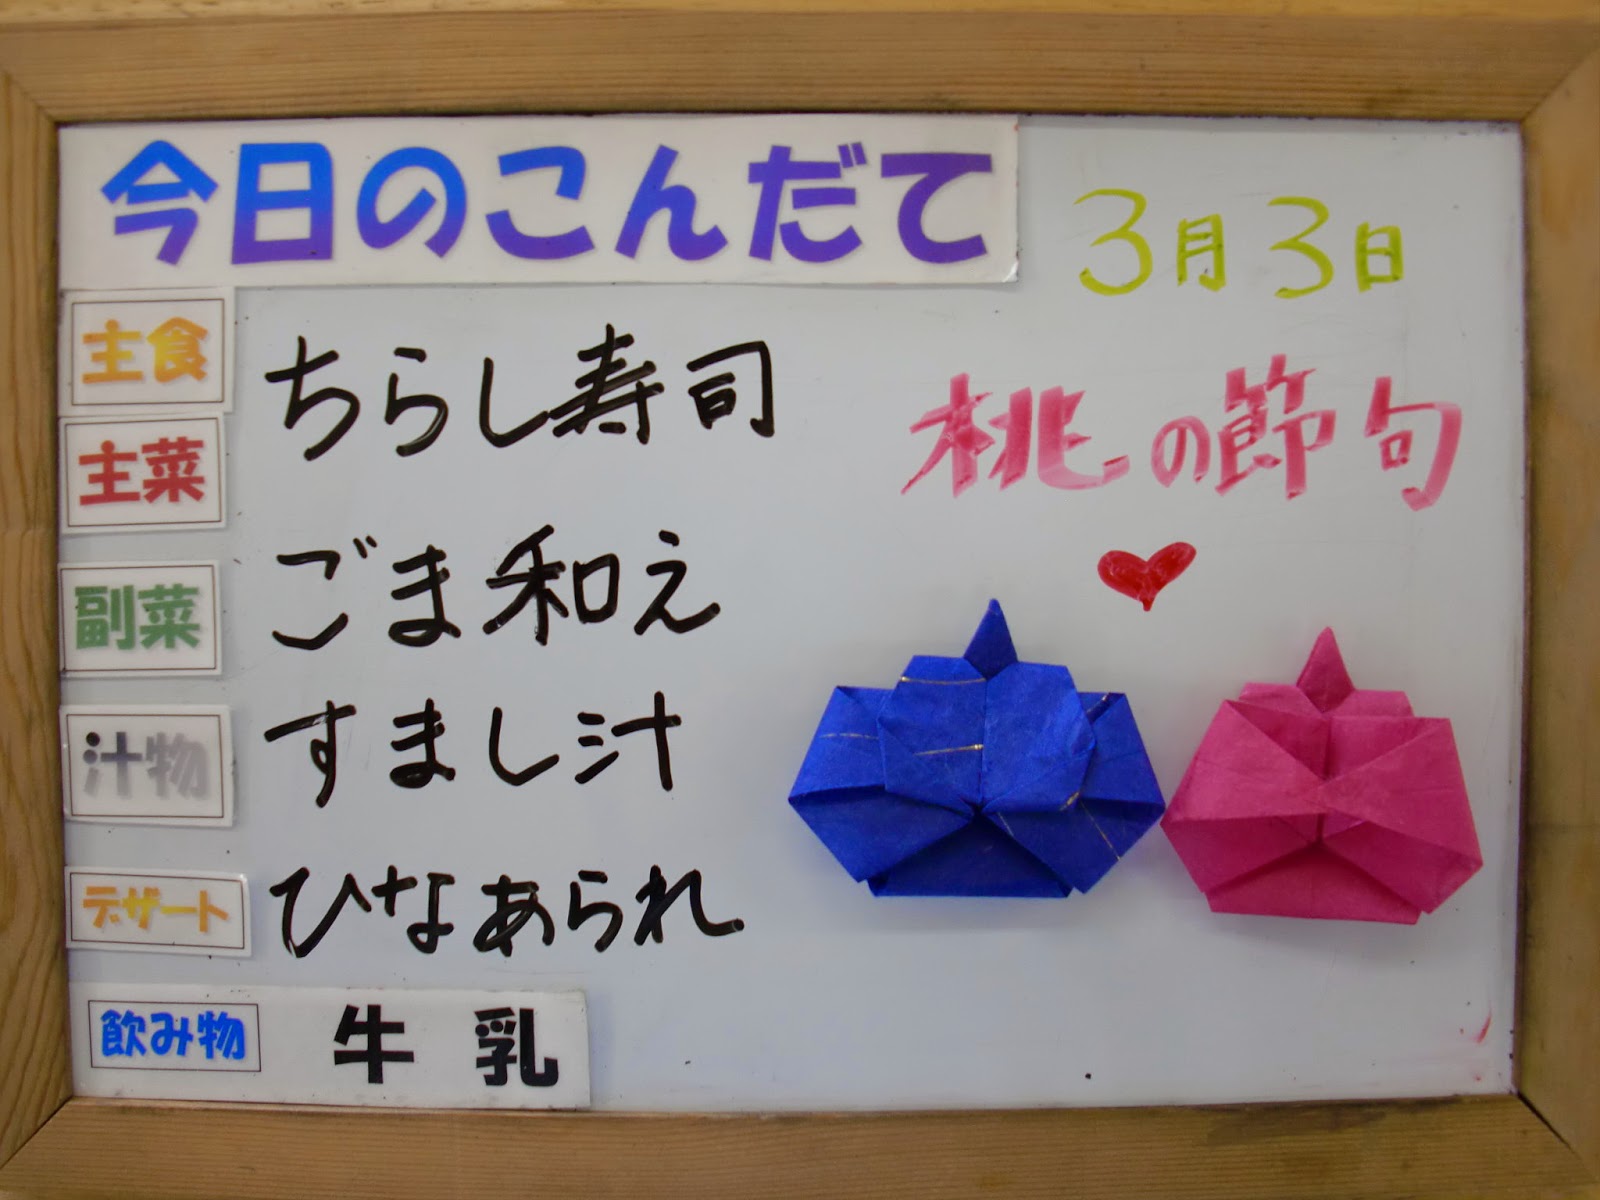 今日のこんだて
3月3日
主食
ちらし寿司
主菜
桃の節句
副菜
ごま和え
汁物
すまし汁
デザート
ひなあられ
飲み物
牛乳